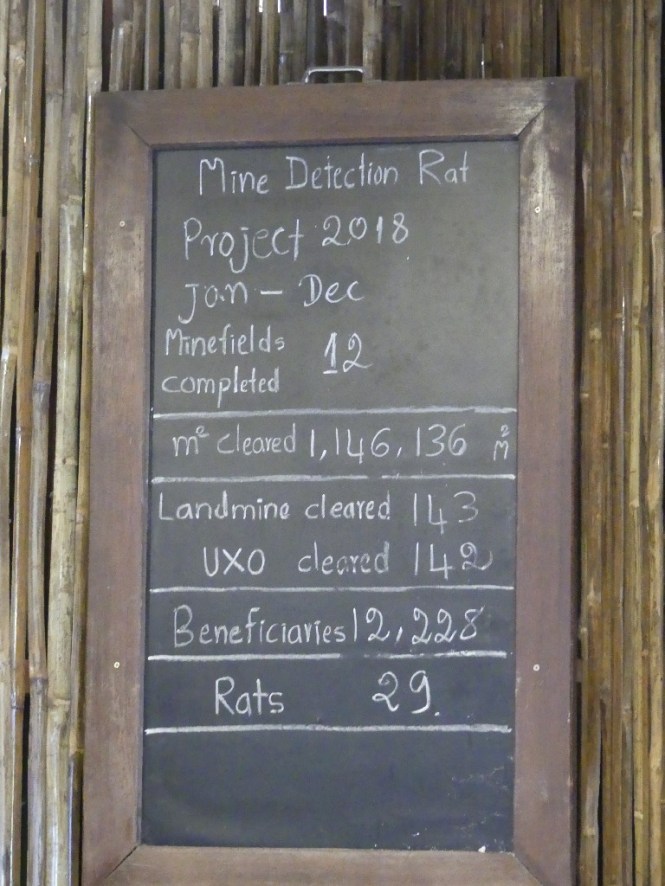 Mine Detection Rat
Project 2018
Jan – Dec
Minefields
completed 12
m² cleared 1,146,136 m²
Landmine cleared 143
UXO cleared 142
Beneficiaries 12,228
Rats 29.